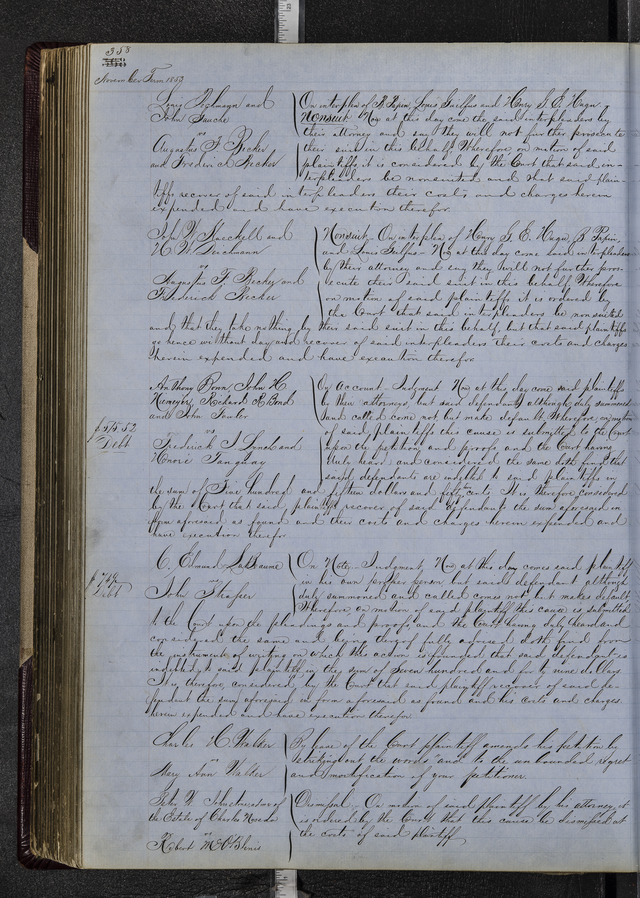 358
November Term 1853
Louis and
John
vs
Augustus F Recker
and Frederick Recker
On interplea of B Papin, Louis and Henry S. E. Hagn
Nonsuit Now at this day come the said interpleaders by
their attorney and say they will not further prosecute
their suit in this behalf Wherefore on motion of said
plaintiffs it is considered by the Court that said in-
terpleaders be nonsuited and that said plain-
tiffs recover of said interpleaders their costs and charges herein
expended and have execution therefor.
John W and
H W
vs
Augustus F Recker and
Frederick Recker
Nonsuit On interplea of Henry S. E. Hagn, B Papin
and Louis Now at this day come said interpleaders
by their attorney and say they will not further pros-
ecute their said suit in this behalf Wherefore
on motion of said plaintiffs it is ordered by
the Court that said interpleaders be nonsuited
and that they take nothing by their said suit in this behalf, but that said plaintiffs
go hence without day and recover of said interpleaders their costs and charges
herein expended and have execution therefor
Anthony Bonn, John H
Richard R Bond
and John
vs
Frederick and
Tanguay
$515.52
Debt
On Account Judgment Now at this day come said plaintiffs
by their attorney, but said defendants although duly summoned
and called come not but make default Wherefore on motion
of said plaintiffs this cause is submitted to the Court
upon the petition and proofs and the Court having
duly heard and considered the same doth find that
said defendants are indebted to said plaintiffs in
the sum of Five hundred and fifteen dollars and fifty cents It is therefore considered
by the Court that said plaintiffs recover of said defendants the sum aforesaid in
form aforesaid as found and their costs and charges herein expended and
have execution therefor
C. Edmund LaBeaume
vs
John
$749
Debt
On Note Judgment, Now at this day comes said plaintiff
in his own proper person but said defendant although
duly summoned and called comes not but makes default
Wherefore on motion of said plaintiff this cause is submitted
to the Court upon the pleadings and proofs and the Court having duly heard and
considered the same and being thereof fully advised doth find from
the instrument of writing on which the action is founded that said defendant is
indebted to said plaintiff in the sum of Seven hundred and forty nine dollars
It is therefore considered by the Court that said plaintiff recover of said de-
fendant the sum aforesaid in form aforesaid as found and his costs and charges
herein expended and have execution therefor.
Charles H Walker
vs
Mary Ann Walker
By leave of the Court plaintiff amends his petition by
striking out the words and to the
and mortification of your petitioner.
John W of
the Estate of Charles
vs
Robert
Dismissal On motion of said plaintiff by his attorney it
is ordered by the Court that this cause be dismissed at
the costs of said plaintiff